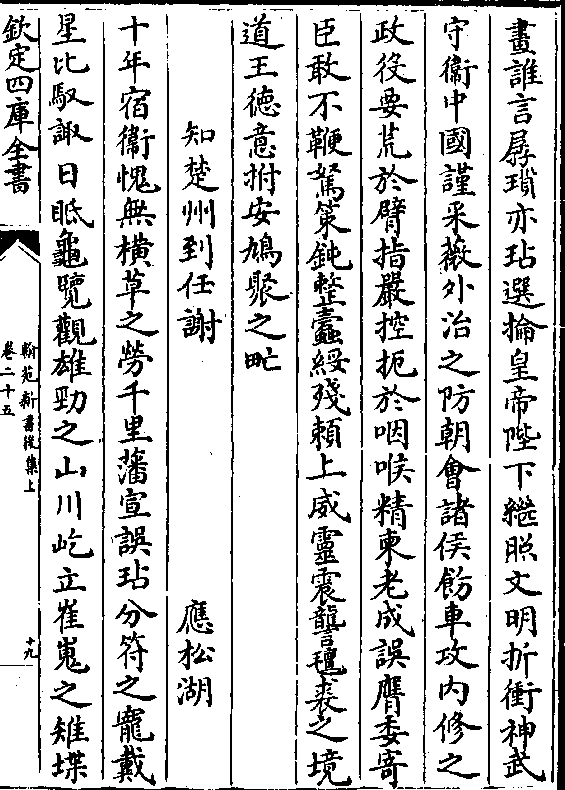 畫誰言孱瑣亦玷選掄皇帝陛下繼照文明折衝神武
守衞中國謹采薇外治之防朝會諸侯飭車攻内修之
政役要荒於臂指嚴控扼於咽喉精柬老成誤膺委寄
臣敢不鞭駑策鈍整蠹綏殘賴上威靈震讋氊裘之境
道王德意拊安鳩聚之甿
知楚州到任謝 應松湖
十年宿衞愧無横草之勞千里藩宣誤玷分符之寵戴
星比馭諏日眂龜覽觀雄勁之山川屹立崔嵬之雉堞
欽定四庫全書
翰苑新書後集上
卷二十五
十九